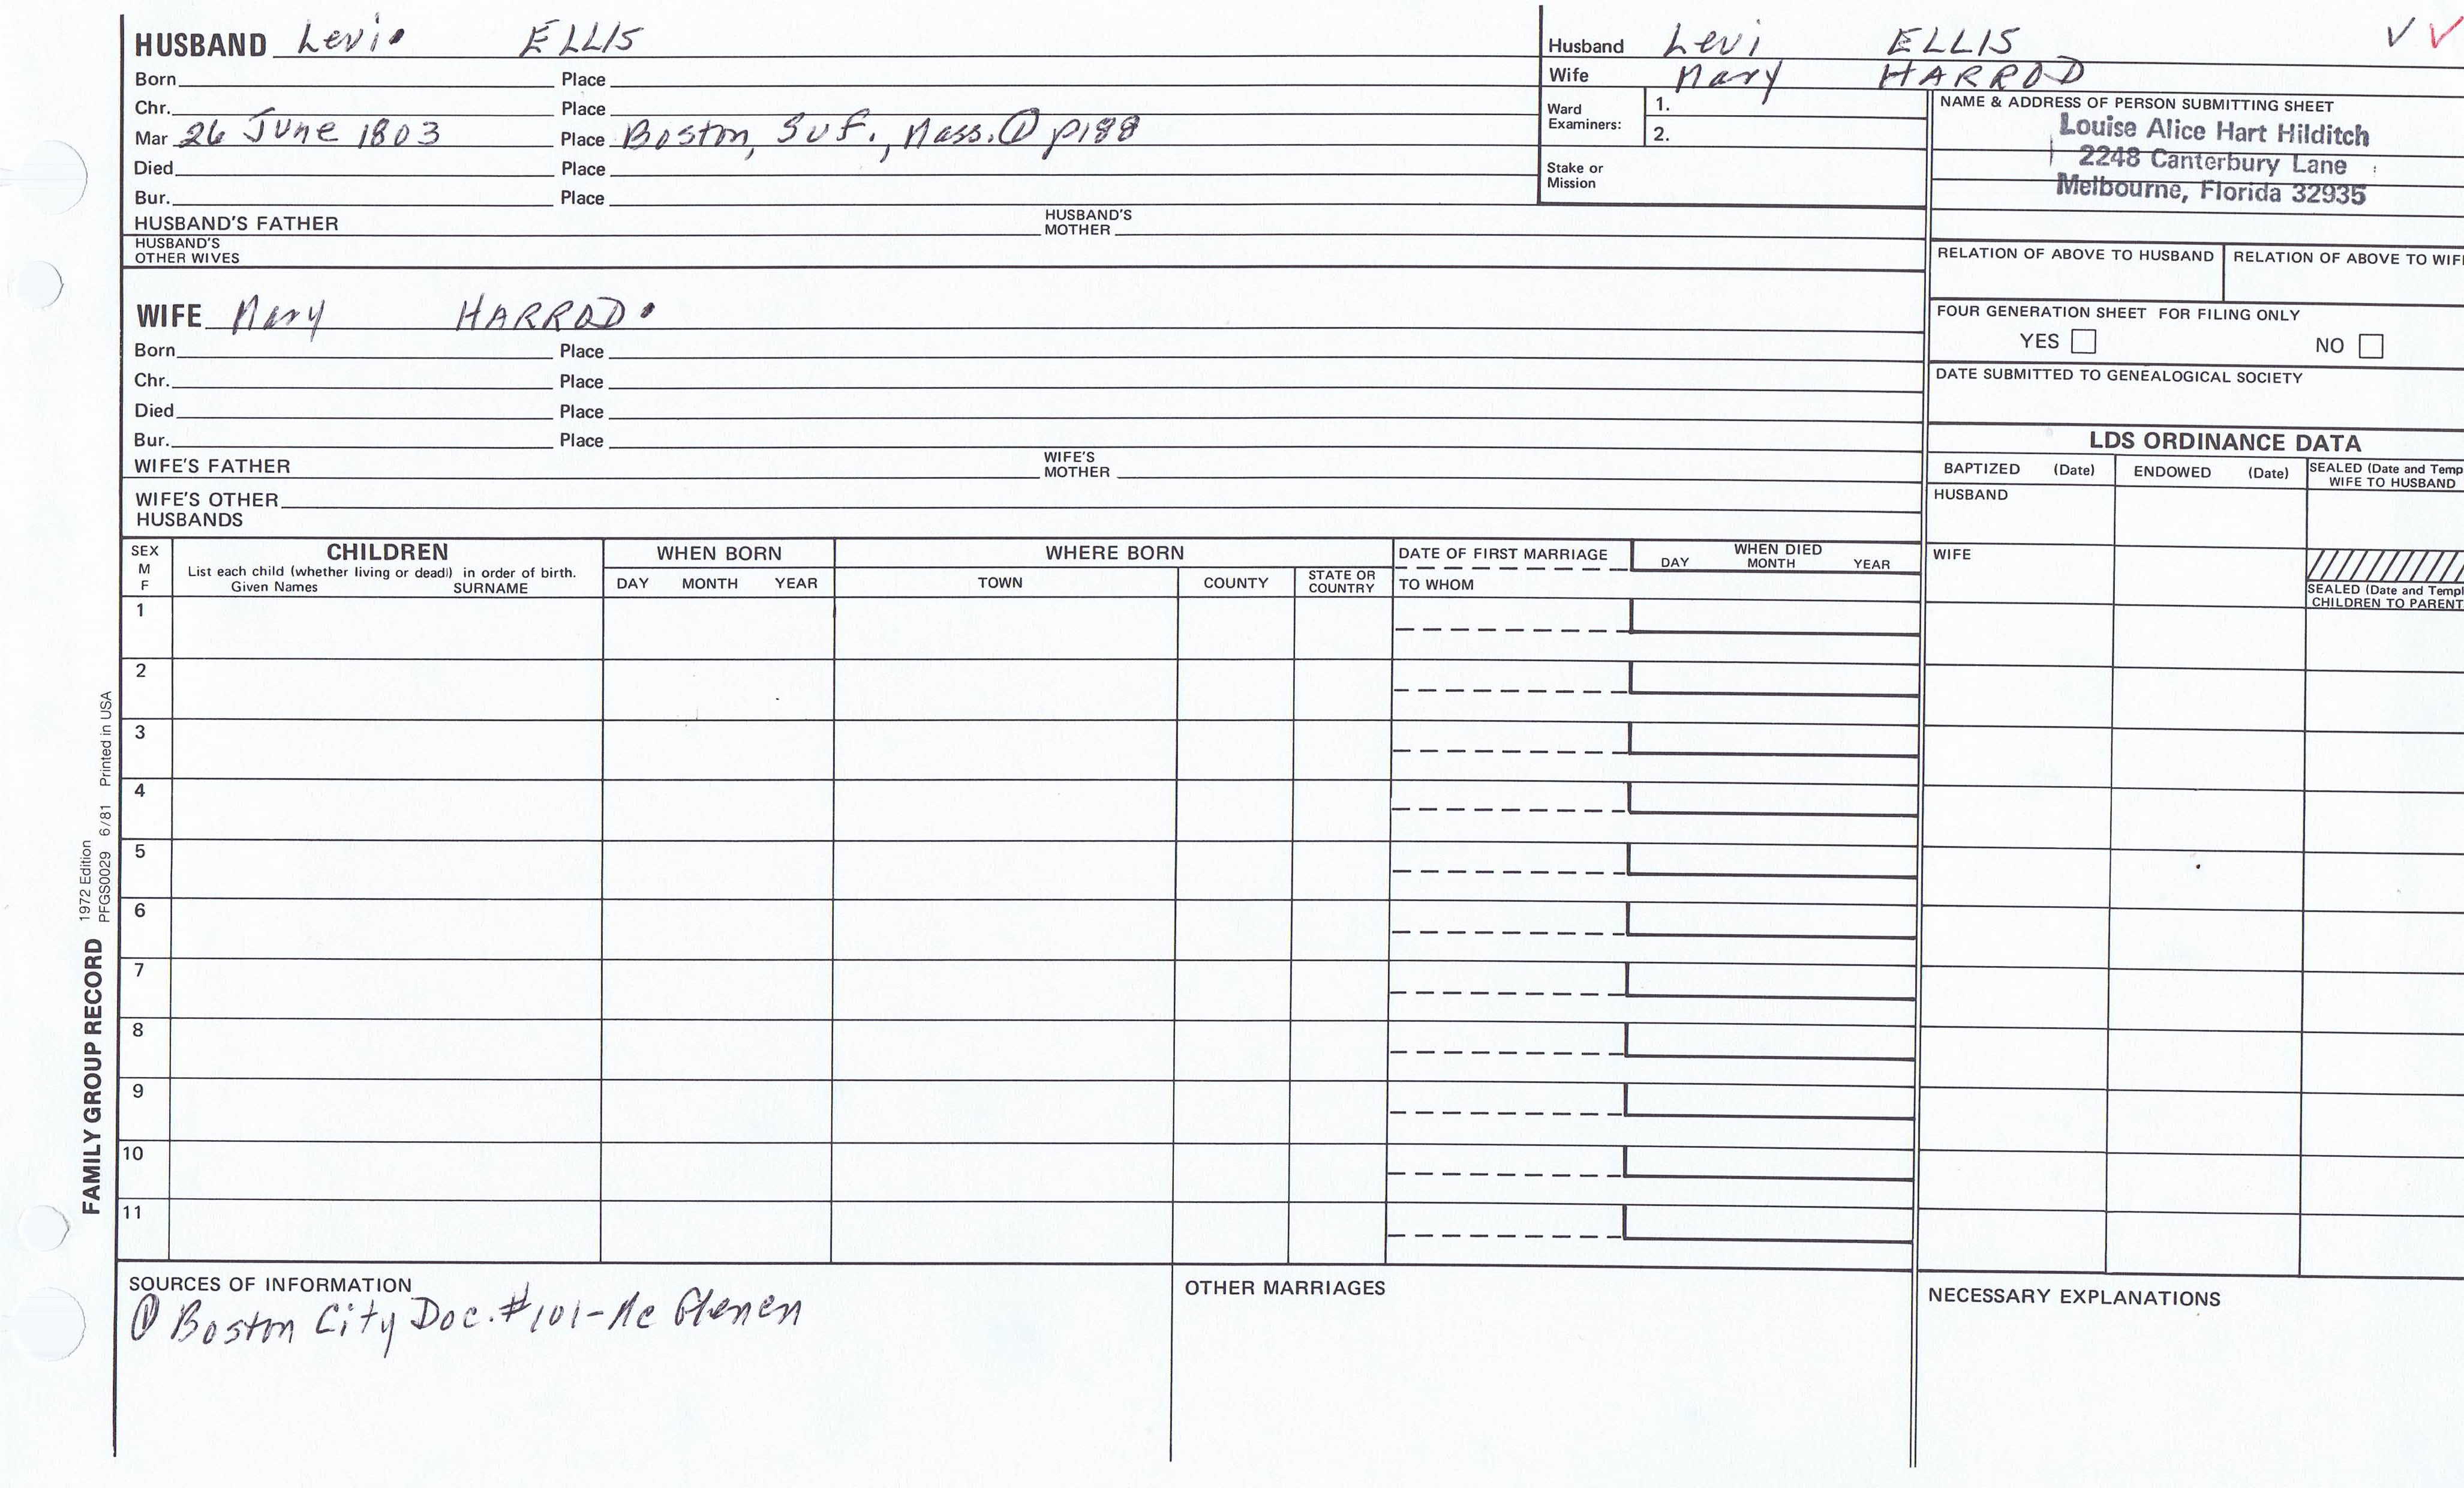 HUSBAND Levi ELLIS
Born Place
Chr. Place
Mar 26 June 1803 Place Boston, Suf., Mass. ① p188
Died Place
Bur. Place
HUSBAND'S FATHER HUSBAND'S MOTHER
HUSBAND'S OTHER WIVES
Husband Levi ELLIS V V
Wife Mary HARROD
Ward Examiners: 1.
2.
Stake or Mission
NAME & ADDRESS OF PERSON SUBMITTING SHEET
Louise Alice Hart Hilditch
2248 Canterbury Lane
Melbourne, Florida 32935
RELATION OF ABOVE TO HUSBAND RELATION OF ABOVE TO WIF
FOUR GENERATION SHEET FOR FILING ONLY
YES NO
DATE SUBMITTED TO GENEALOGICAL SOCIETY
WIFE Mary HARROD
Born Place
Chr. Place
Died Place
Bur. Place
WIFE'S FATHER WIFE'S MOTHER
WIFE'S OTHER HUSBANDS
LDS ORDINANCE DATA
BAPTIZED (Date) ENDOWED (Date) SEALED (Date and Temp
WIFE TO HUSBAND
HUSBAND
WIFE
SEALED (Date and Templ
CHILDREN TO PARENT
SEX M F
CHILDREN
List each child (whether living or dead) in order of birth.
Given Names SURNAME
WHEN BORN
DAY MONTH YEAR
WHERE BORN
TOWN COUNTY STATE OR COUNTRY
DATE OF FIRST MARRIAGE
TO WHOM
WHEN DIED
DAY MONTH YEAR
1
2
3
4
5
6
7
8
9
10
11
SOURCES OF INFORMATION
① Boston City Doc. #101-Mc Glenen
OTHER MARRIAGES
NECESSARY EXPLANATIONS
FAMILY GROUP RECORD
1972 Edition
PFGS0029 6/81 Printed in USA